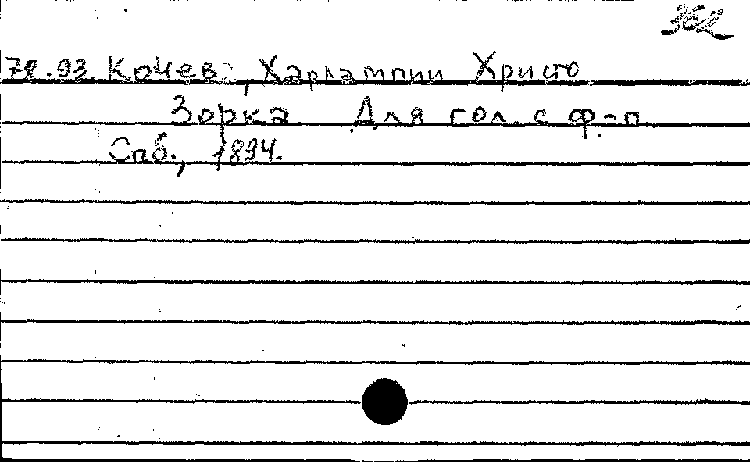 362
78.93. Кочев, Харлампии Христо
Зорка Для гол. с ф-п.
Спб., 1894.